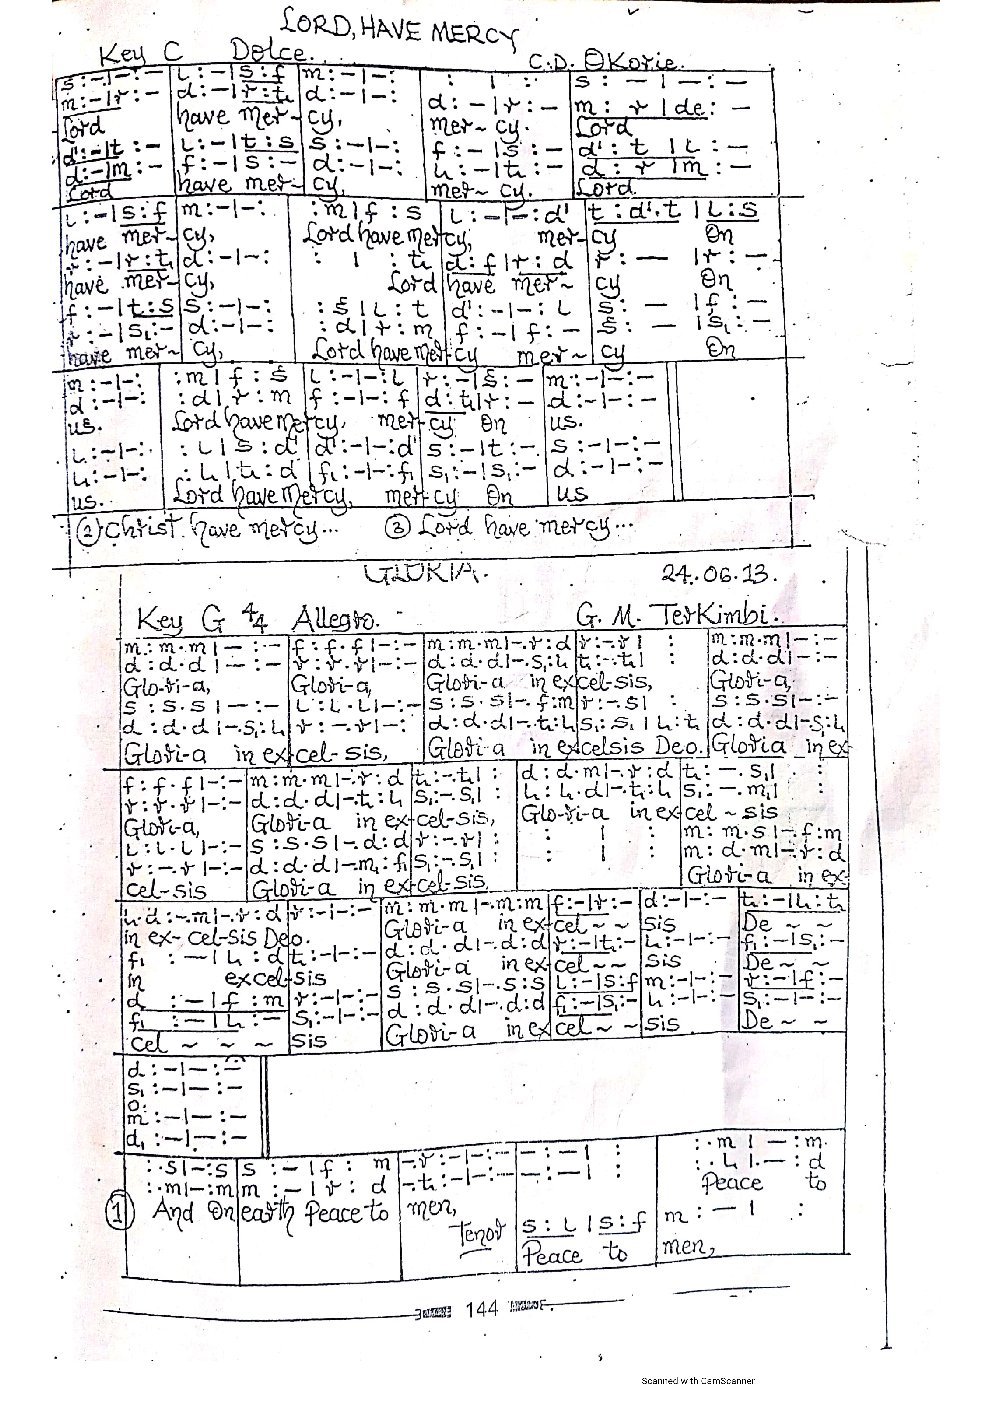 LORD, HAVE MERCY
Key C Dolce... C.D. Okorie.
s : – | – : – l : – | s : f m : – | – : : | : s : – | – : –
m : – | r : – d : – | r : t₁ d : – | – : d : – | r : – m : r | de : –
Lord have mer~ cy, mer~ cy. Lord
d' : – | t : – l : – | t : s s : – | – : f : – | s : – d' : t | l : –
d : – | m : – f : – | s : – d : – | – : l₁ : – | t₁ : – d : r | m : –
Lord have mer~ cy, mer~ cy. Lord.
l : – | s : f m : – | – : : m | f : s l : – | – : d' t : d'.t | l : s
have mer~ cy, Lord have mercy, mer~ cy On
r : – | r : t₁ d : – | – : : | : t₁ d : f | r : d r : – | r : –
have mer~ cy, Lord have mer~ cy On
f : – | t : s s : – | – : : s | l : t d' : – | – : l s : – | f : –
r : – | s₁ : – d : – | – : : d | r : m f : – | f : – s : – | s₁ : –
have mer~ cy, Lord have mercy mer~ cy On
m : – | – : : m | f : s l : – | – : l r : – | s : – m : – | – : –
d : – | – : : d | r : m f : – | – : f d : t₁ | r : – d : – | – : –
us. Lord have mercy, mercy On us.
l : – | – : : l | s : d' d' : – | – : d' s : – | t : – s : – | – : –
l₁ : – | – : : l₁ | t₁ : d f₁ : – | – : f₁ s₁ : – | s₁ : – d : – | – : –
us. Lord have Mercy, mercy On us
② Christ have mercy... ③ Lord have mercy...
GLORIA. 24.06.13.
Key G 4/4 Allegro. G. M. Terkimbi.
m : m.m | – : – f : f.f | – : – m : m.m | –.r : d r : –.r | : m : m.m | – : –
d : d.d | – : – r : r.r | – : – d : d.d | –.s₁ : l₁ t₁ : –.t₁ | : d : d.d | – : –
Glo-ri-a, Glori-a, Glori-a in excel-sis, Glori-a,
s : s.s | – : – l : l.l | – : – s : s.s | –.f : m r : –.s | : s : s.s | – : –
d : d.d | –.s₁ : l₁ r : –.r | – : d : d.d | –.t₁ : l₁ s₁ : s₁ | l₁ : t₁ d : d.d | –.s₁ : l₁
Glori-a in excel-sis, Glori a in excelsis Deo. Gloria in ex-
f : f.f | – : – m : m.m | –.r : d t₁ : –.t₁ | : d : d.m | –.r : d t₁ : –.s₁ | :
r : r.r | – : – d : d.d | –.t₁ : l₁ s₁ : –.s₁ | : l₁ : l₁.d | –.t₁ : l₁ s₁ : –.m₁ | :
Glori-a, Glori-a in excel-sis, Glo-ri-a in excel ~ sis
l : l.l | – : – s : s.s | –.d : d r : –.r | : : | : m : m.s | –.f : m
r : –.r | – : – d : d.d | –.m₁ : f₁ s₁ : –.s₁ | : : | : m : d.m | –.r : d
cel-sis Glori-a in excel-sis. Glori-a in ex-
l₁.d : –.m | –.r : d r : – | – : – m : m.m | –.m : m f : – | r : – d : – | – : – t₁ : – | l₁ : t₁
in ex-cel-sis Deo. Glori-a in ex- cel ~ ~ sis De ~ ~
f₁ : – | l₁ : d t₁ : – | – : – d : d.d | –.d : d r : – | t₁ : – l₁ : – | – : – f₁ : – | s₁ : –
in excelsis Glori-a in ex- cel ~ ~ sis De ~ ~
d : – | f : m r : – | – : – s : s.s | –.s : s l : – | s : f m : – | – : – r : – | f : –
f₁ : – | l₁ : – s₁ : – | – : – d : d.d | –.d : d f₁ : – | s₁ : – l₁ : – | – : – s₁ : – | – : –
cel ~ ~ ~ sis Glori-a in ex cel ~ ~ sis De ~ ~
d : – | – : –
s₁ : – | – : –
o.
m : – | – : –
d₁ : – | – : –
: .s | – : s s : – | f : m –.r : – | – : – – : – | : : .m | – : m
: .m | – : m m : – | r : d –.t₁ : – | – : – – : – | : : .l₁ | – : d
Peace to
① And On earth Peace to men,
Tenor s : l | s : f m : – | :
Peace to men,
144
Scanned with CamScanner